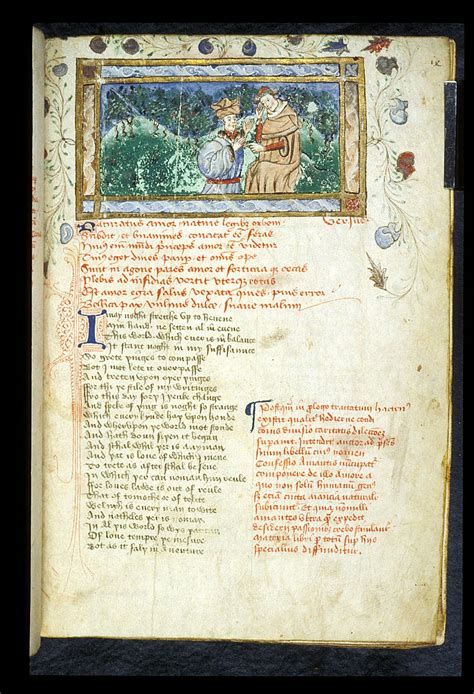 Naturatus amor nature legibus orbem
Subdit et unanimes concitat esse feras
Huius enim mundi princeps amor esse videtur
Cuius eget dives pauper et omnis ope
Sunt in agone pares amor et fortuna que cecas
Plebis ad insidias vertit uterque rotas
Est amor egra salus vexata quies pius error
Bellica pax vulnus dulce suave malum
I may noght strecche up to hevene
Myn hand ne setten al in evene
This world which evere is in balance
It stant noght in my suffisance
So grete þinges to compasse
Bot I mot lete it overpasse
And treten upon oþer þinges
For þi þe stile of my writinges
Fro this day forþ I þenke change
And speke of þing is noght so strange
Which every kynde haþ upon honde
And wherupon þe world mot stonde
And hath don siþen it began
And schal whil þer is any man
And þat is love of which I mene
To trete as after schal be sene
In which þer can noman him reule
For loves lawe is out of reule
That of tomoche or of tolite
Welnyh is every man to wyte
And natheles þer is noman
In al þis world so wys þat can
Of love tempre þe mesure
Bot as it falþ in aventure
Postquam in prologo tractatum hactenus
existit qualiter hodierne condi
cionis divisio caritatis dileccionem
superavit intendit auctor ad presens
suum libellum cuius nomen
Confessio Amantis nuncupatur
componere de illo amore a
quo non solum humanum genus
sed eciam cuncta animancia naturaliter
subiciuntur Et quia nonnulli
amantes ultra quam expedit
desiderii passionibus crebro stimulantur
materia libri per totum super hiis
specialius diffunditur